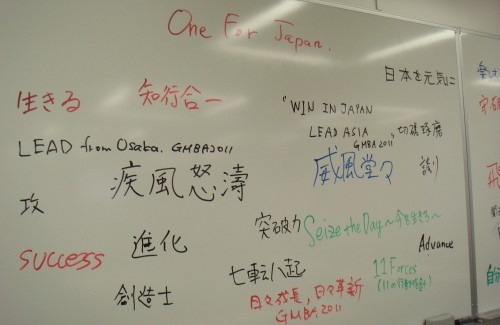 One For Japan.
日本を元気に
生きる
知行合一
"WIN IN JAPAN
LEAD ASIA
GMBA2011
切磋琢磨
LEAD from Osaka. GMBA2011
疾風怒濤
威風堂々
攻
突破力
Seize the Day〜今を生きろ〜
Advance
success
進化
七転八起
11 Forces
創造士
日々成長，日々革新
GMBA.2011